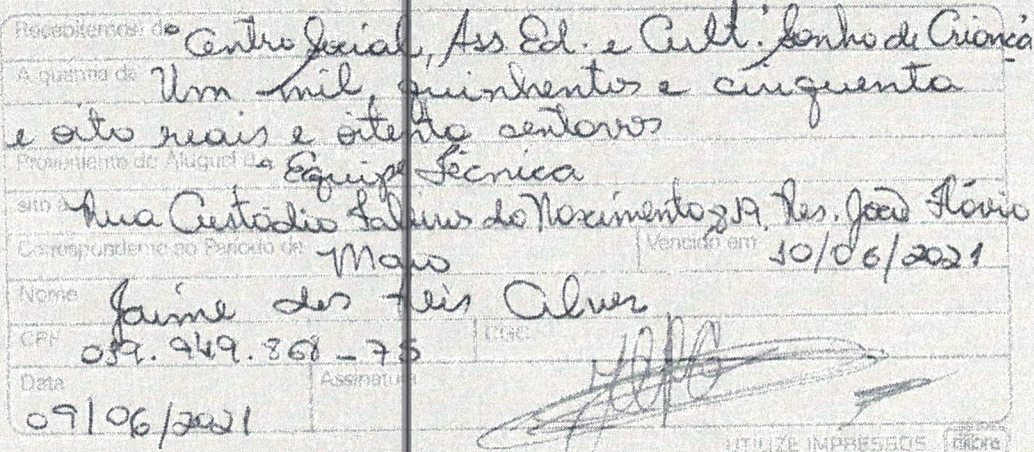 Recebi(emos) de Centro Social, Ass. Ed. e Cult. Sonho de Criança
A quantia de Um mil, quinhentos e cinquenta
e oito reais e oitenta centavos
Proveniente do Aluguel da Equipe Técnica
sito à Rua Custódio do Nascimento, Res. João Flávio
Correspondente ao Período de Maio Vencido em 10/06/2021
Nome Jaime dos Reis Alves
CPF 039.949.868-75 CGC
Data Assinatura
09/06/2021
UTILIZE IMPRESSOS tilibra